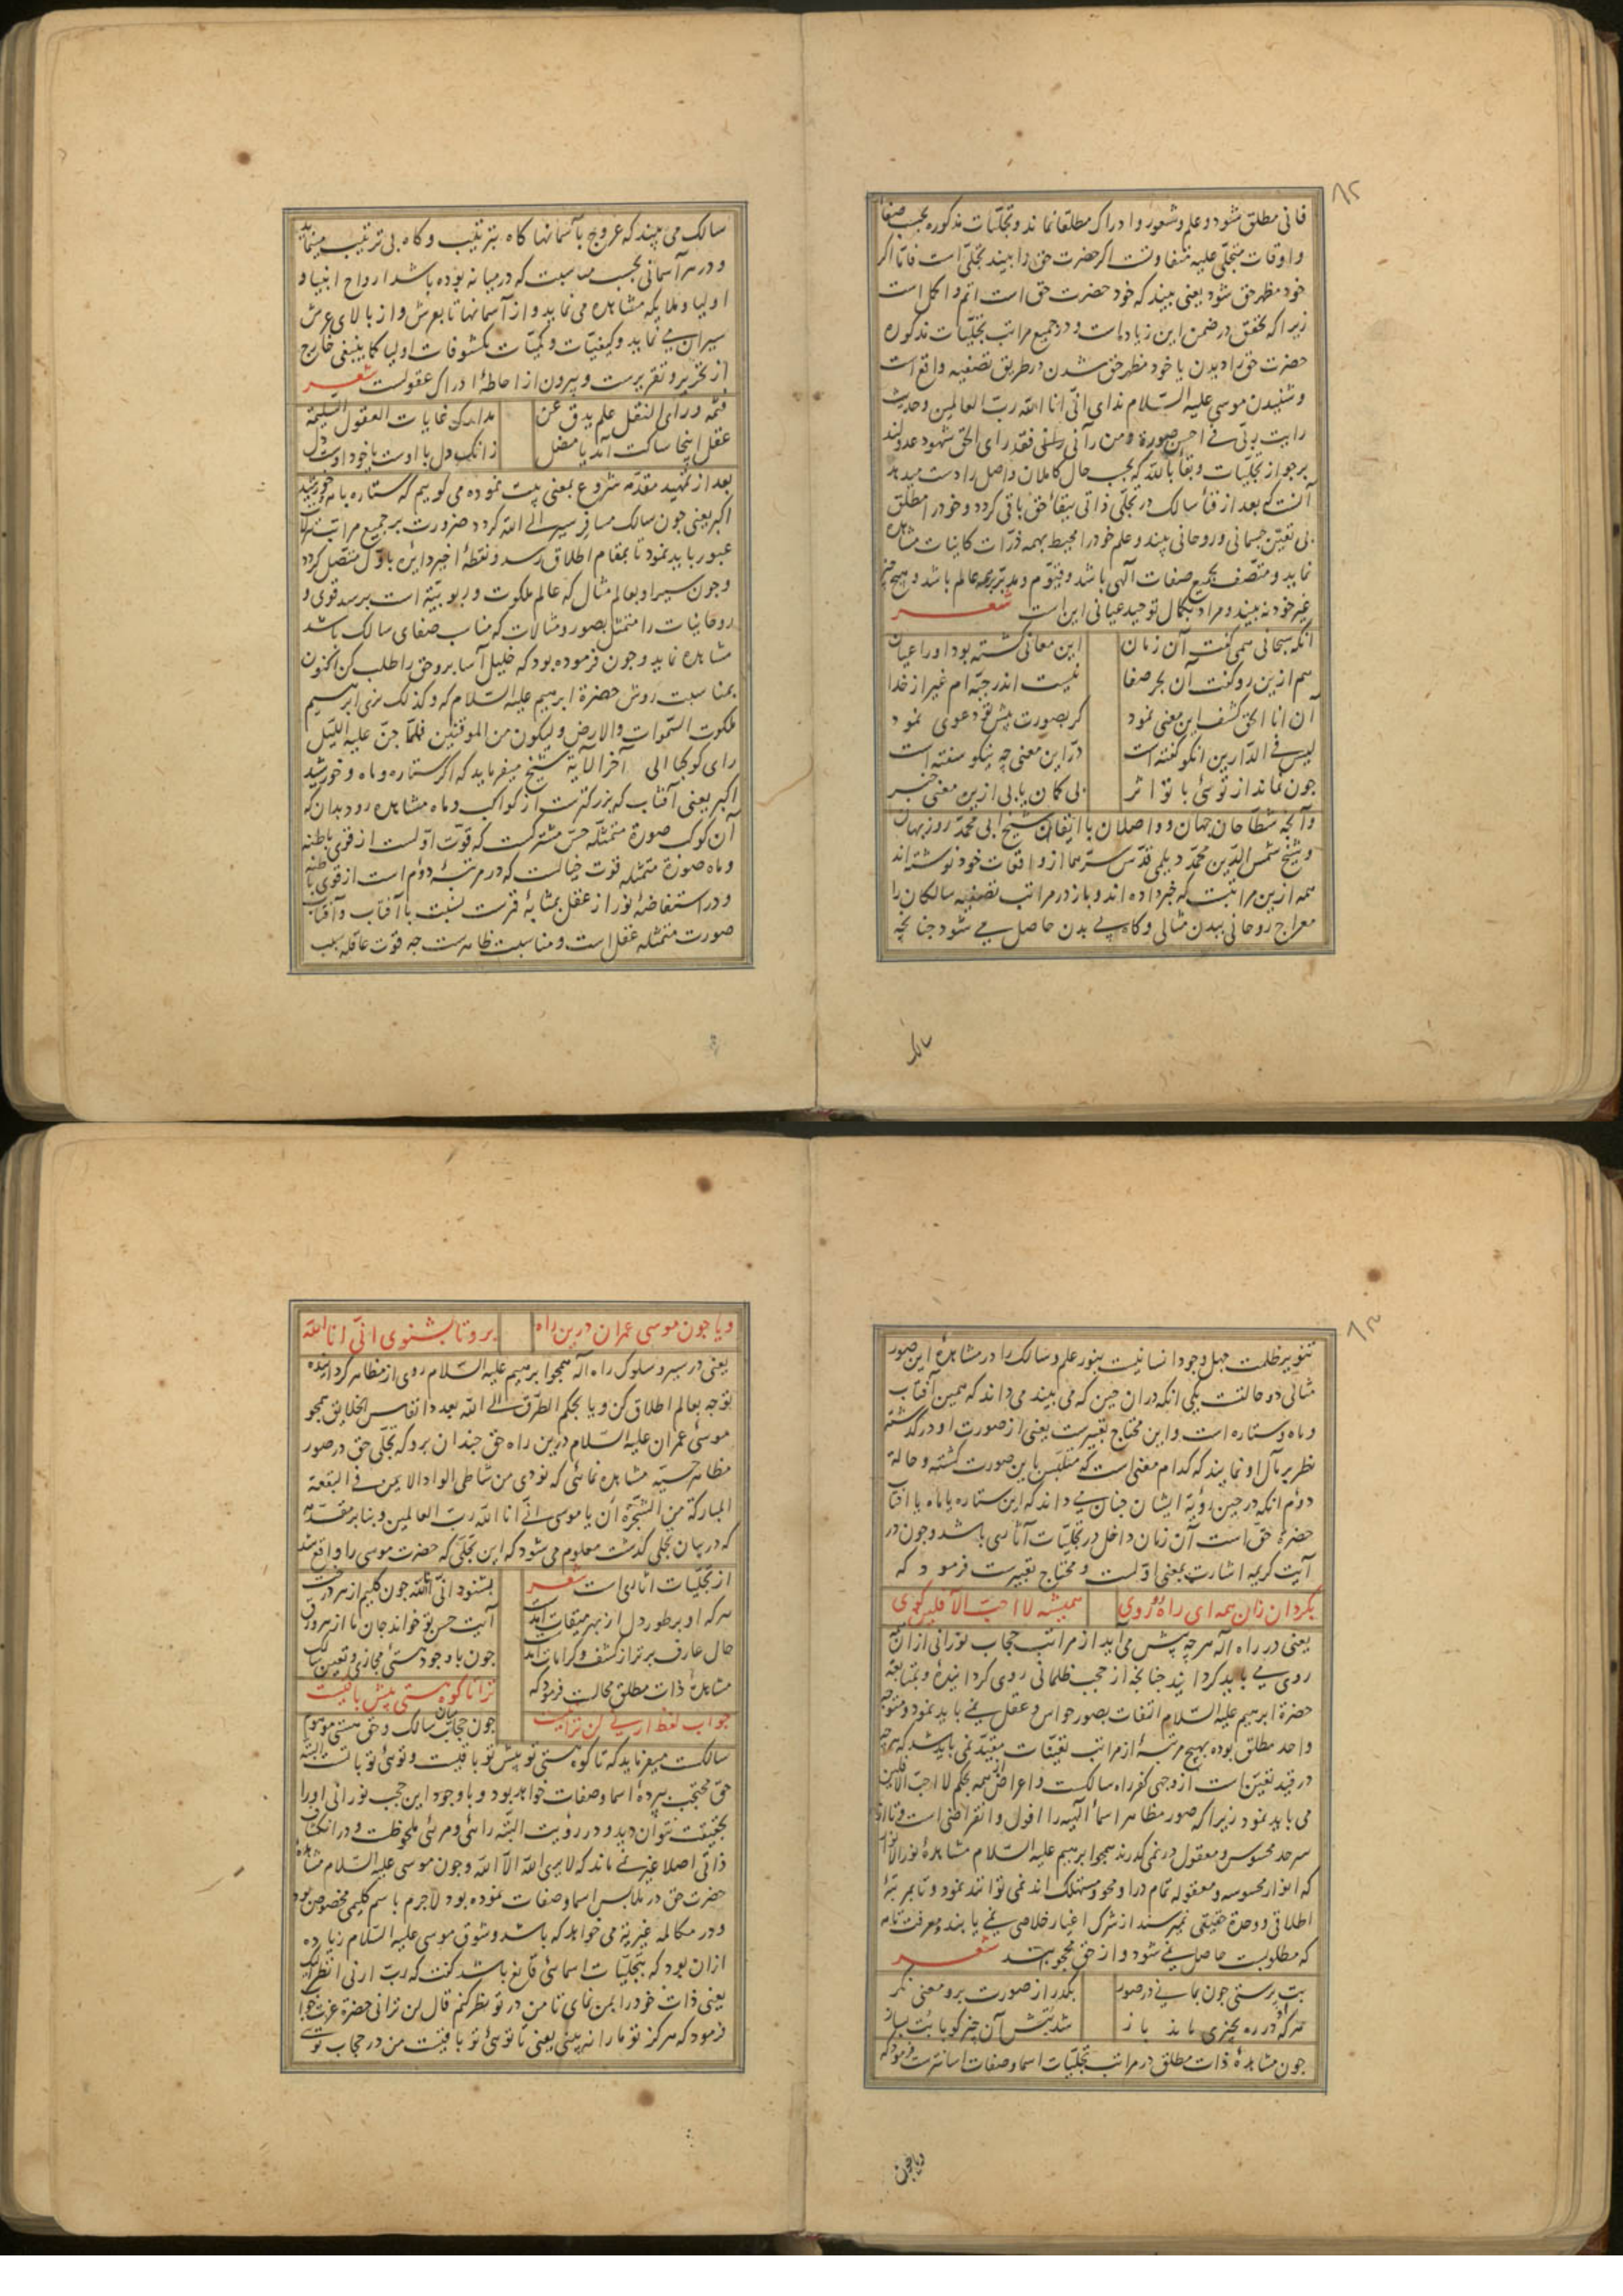 ۸۲
فانی مطلق شود و علم و شعور و ادراک مطلقا نماند و تجلیات مذکوره بحسب صفا
و اوقات متجلی علیه متفاوتست اگر حضرت حق را بیند تجلی است فاما اگر
خود مظهر حق شود یعنی بیند که خود حضرت حق است اتم و اکمل است
زیرا که تحقق در ضمن این زیاده است و در جمیع مراتب تجلیات مذکوره
حضرت حق را دیدن یا خود مظهر حق شدن در طریق تصفیه واقع است
و شنیدن موسی علیه السلام ندای انی انا الله رب العالمین و حدیث
رایت ربی فی احسن صورة و من رآنی فقد رای الحق شهود عدولند
بر جواز تجلیات و بقا بالله که بحسب حال کاملان واصل را دست میدهد
آنست که بعد از فنا سالک در تجلی ذاتی ببقاء حق باقی گردد و خود را مطلق
بی تعین جسمانی و روحانی بیند و علم خود را محیط بهمه ذرات کاینات مشاهده
نماید و متصف بجمیع صفات الهی باشد و قیوم و مدبر همه عالم باشد و هیچ چیز
غیر خود نه بیند و مراد بکمال توحید عیانی این است شعر
آنکه سبحانی همی گفت آن زمان این معانی گشته بود او را عیان
هم ازین رو گفت آن بحر صفا نیست اندر جبه ام غیر از خدا
آن انا الحق کشف این معنی نمود گر بصورت پیش تو دعوی نمود
لیس فی الدارین آنکو گفته است در این معنی چه نیکو سفته است
چون نماند از توئی با تو اثر بی گمان یابی ازین معنی خبر
و آنچه شطاحان جهان و واصلان باایقان شیخ ابی محمد روزبهان
و شیخ شمس الدین محمد دیلمی قدس سرهما از واقعات خود نوشته اند
همه ازین مراتبست که خبر داده اند و باز در مراتب تصفیه سالکان را
معراج روحانی ببدن مثالی و گاه بی بدن حاصل می شود چنانچه
سالک
سالک می بیند که عروج بآسمانها گاه بترتیب و گاه بی ترتیب مینماید
و در هر آسمانی بحسب مناسبت که در میانه بوده باشد ارواح انبیا و
اولیا و ملایکه مشاهده می نماید و از آسمانها تا بعرش و از بالای عرش
سیران می نماید و کیفیات و کمیات مکشوفات اولیا کما ینبغی خارج
از تحریر و تقریرست و بیرون از احاطهٔ ادراک عقولست شعر
فثمه ورای النقل علم یدق عن مدارک غایات العقول السلیمة
عقل اینجا ساکت آمد یا مضل زانکه دل با اوست یا خود اوست دل
بعد از تمهید مقدمه شروع بمعنی بیت نموده می گوییم که ستاره با مه و خورشید
اکبر یعنی چون سالک مسافر سیر الی الله گردد ضرورت بر جمیع مراتب
عبور باید نمود تا بمقام اطلاق رسد و نقطهٔ اخیر دایره باول متصل گردد
و چون سیر او بعالم مثال که عالم ملکوت و ربوبیة است برسد قوی و
روحانیات را متمثل بصور و مثالات که مناسب صفای سالک باشد
مشاهده نماید و چون فرموده بود که خلیل آسا برو حق را طلب کن اکنون
بمناسبت روش حضرة ابرهیم علیه السلام که و کذلک نری ابرهیم
ملکوت السموات و الارض و لیکون من الموقنین فلما جن علیه اللیل
رای کوکبا الی آخر الآیة شیخ میفرماید که اگر ستاره و ماه و خورشید
اکبر یعنی آفتاب که بزرگترست از کواکب و ماه مشاهده رود بدان که
آن کوکب صورة متمثله حس مشترکست که قوت اولست از قوی باطنه
و ماه صورة متمثله قوت خیالست که در مرتبهٔ دوم است از قوی باطنه
و در استفاضهٔ نور از عقل بمثابهٔ قمرست نسبت با آفتاب و آفتاب
صورت متمثله عقل است و مناسبت ظاهرست چه قوت عاقله سبب
۸۳
تنویر ظلمت جهل وجود انسانیت بنور علم و سالک را در مشاهدهٔ این صور
مثالی دو حالتست یکی آنکه در آن حین که می بیند می داند که همین آفتاب
و ماه و ستاره است و این محتاج تعبیرست یعنی از صورت او درگذشته
نظر بر مآل او نمایند که کدام معنی است که متلبس باین صورت گشته و حالة
دوم آنکه در حین رؤیة ایشان چنان می داند که این ستاره یا ماه یا آفتاب
حضرة حق است آن زمان داخل در تجلیات آثاری باشد و چون در
آیت کریمه اشارت بمعنی اولست و محتاج تعبیرست فرمود که
بگردان زان همه ای راه رو روی همیشه لا احب الآفلین گوی
یعنی در راه اله هر چه پیش می آید از مراتب حجاب نورانی از آن
روی می باید گردانید چنانچه از حجب ظلمانی روی گردانیده و بمتابعة
حضرة ابرهیم علیه السلام التفات بصور حواس و عقل نمی باید نمود و متوجه
واحد مطلق بوده بهیچ مرتبهٔ از مراتب تعینات مقید نمی باید شد که هر چه
در قید تعین است از وجهی کفر راه سالکست و اعراض از همه بحکم لا احب الافلین
می باید نمود زیرا که صور مظاهر اسماء الهیه را افول و انقراضی است و تا از
سرحد محسوس و معقول در نمی گذرند همچو ابرهیم علیه السلام مشاهدهٔ نور الانوار
که انوار محسوسه و معقوله تمام در او محو و مستهلک اند نمی توانند نمود و تا بمرتبهٔ
اطلاقی و وحدة حقیقی نمیرسند از شرک اغیار خلاصی نمی یابند و معرفت تامه
که مطلوبست حاصل نمی شود و از حق محجوبند شعر
بت پرستی چون بمانی در صور بگذر از صورت برو معنی نگر
هر که او در ره بچیزی ماند باز شد بتش آن چیز گو با بت بساز
چون مشاهدهٔ ذات مطلق در مراتب تجلیات اسما و صفات اسانترست فرمود که
و یا چون
و یا چون موسی عمران درین راه برو تا بشنوی انی انا الله
یعنی در سیر و سلوک راه اله همچو ابرهیم علیه السلام روی از مظاهر گردانیده
توجه بعالم اطلاق کن و یا بحکم الطرق الی الله بعدد انفاس الخلایق همچو
موسی عمران علیه السلام درین راه حق چندان برو که تجلی حق در صور
مظاهر حسیه مشاهده نمائی که نودی من شاطی الواد الایمن فی البقعة
المبارکة من الشجرة ان یا موسی انی انا الله رب العالمین و بنا بر مقدمه
که در بیان تجلی گذشت معلوم می شود که این تجلی که حضرت موسی را واقع شد
از تجلیات آثاری است شعر بشنود انی انا الله چون کلیم از هر درخت
هر که او بر طور دل از بهر میقات آمد آیت حسن تو خواند جان ما از هر ورق
حال عارف برتر از کشف و کرامات آمد چون با وجود هستی مجازی و تعین سالک
مشاهدهٔ ذات مطلق محالست فرمود که ترا تا کوه هستی پیش باقیست
جواب لفظ ارنی لن ترانیست چون حجاب میان سالک و حق هستی موهوم
سالکست میفرماید که تا کوه هستی تو پیش تو باقیست و توئی تو با تست البته
حق محتجب بپردهٔ اسما و صفات خواهد بود و با وجود این حجب نورانی او را
بحقیقت نتوان دید و در رؤیت البته رائی و مرئی ملحوظست و در انکشاف
ذاتی اصلا غیر نمی ماند که لا یری الله الا الله و چون موسی علیه السلام مشاهده
حضرت حق در ملابس اسما و صفات نموده بود لاجرم باسم کلیمی مخصوص بود
و در مکالمه غیریة می خواهد که باشد و شوق موسی علیه السلام زیاده
از آن بود که بتجلیات اسمائی قانع باشد گفت که رب ارنی انظر الیک
یعنی ذات خود را بمن نمای تا من در تو نظر کنم قال لن ترانی حضرة عزت جواب
فرمود که هرگز تو ما را نه بینی یعنی تا توئی تو باقیست من در حجاب توئی